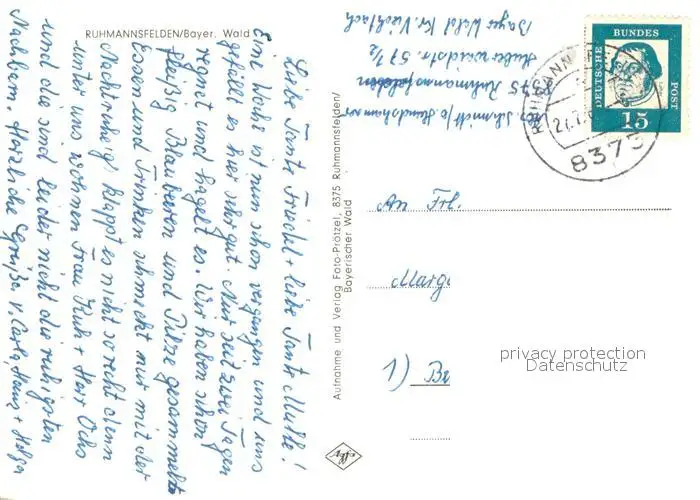 RUHMANNSFELDEN/Bayer. Wald
Liebe Tante Friedel + liebe Tante Mulle!
Eine Woche ist nun schon vergangen und uns
gefällt es hier sehr gut. Nur seit zwei Tagen
regnet und hagelt es. Wir haben schon
fleißig Blaubeeren und Pilze gesammelt
Essen und Trinken schmeckt nur mit der
Nachtruhe klappt es nicht so recht denn
unter uns wohnen Frau Kuh + Herr Ochs
und die sind leider nicht die ruhigsten
Nachbarn. Herzliche Grüße v. Carla, Heinz + Holger
Aufnahme und Verlag Foto-Prötzel, 8375 Ruhmannsfelden/
Bayerischer Wald
Schmidt
8375 Ruhmannsfelden
Huberweidstr. 57 1/2
Bayer Wald Kr. Viechtach
DEUTSCHE
BUNDES
POST
15
8375
An Frl.
Marg
1) Be
privacy protection
Datenschutz